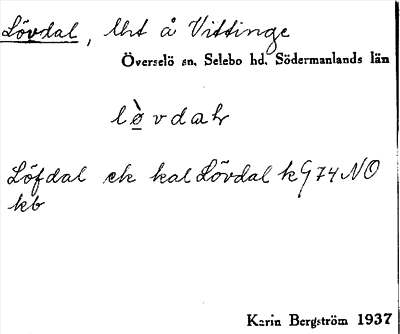 Lövdal, lht å Vittinge
Överselö sn. Selebo hd. Södermanlands län
lø̀vdaƚr
Löfdal ek kal Lövdal k G74NO
kb
Karin Bergström 1937